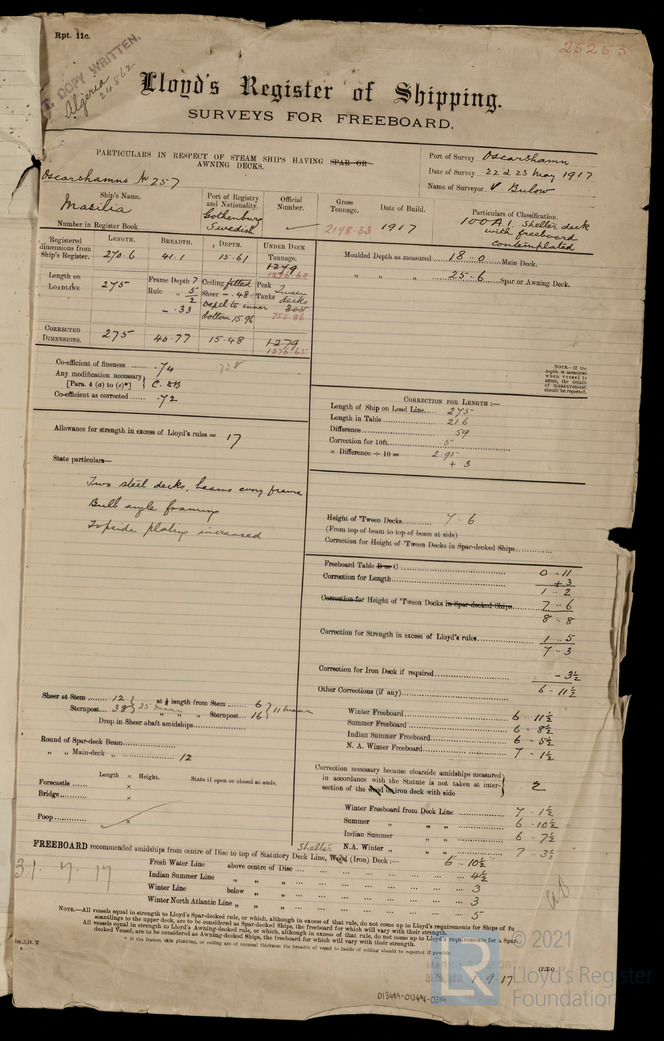 Rpt. 11c.
25253
COPY WRITTEN.
Algeria
24862
Lloyd's Register of Shipping.
SURVEYS FOR FREEBOARD.
PARTICULARS IN RESPECT OF STEAM SHIPS HAVING SPAR OR
AWNING DECKS.
Port of Survey Oscarshamn
Date of Survey 22 & 23 May 1917
Name of Surveyor V Bulow
Oscarshamns No 257
Ship's Name.
Masilia
Number in Register Book
Port of Registry and Nationality.
Gothenburg
Swedish
Official Number.
Gross Tonnage.
2198.33
Date of Build.
1917
Particulars of Classification.
100A1 Shelter deck
with freeboard
contemplated
Registered dimensions from Ship's Register.
LENGTH. 270.6
BREADTH. 41.1
DEPTH. 15.61
UNDER DECK Tonnage.
1279
1276.65
Length on LOADLINE 275
Frame Depth 7
Rule „ 5/2
- .33
Ceiling fitted
Sheer - .48
Depth to inner
bottom 15.96
Peak Tanks
Tween
decks
805
755.86
CORRECTED DIMENSIONS. 275 40.77 15.48 1279
1276.65
Moulded Depth as measured 18 .. 0 Main Deck.
„ „ „ 25 .. 6 Spar or Awning Deck.
NOTE.—If the depth is measured when vessel is afloat, the details of measurement should be reported.
Co-efficient of fineness .74
728
Any modification necessary
[Para. 4 (a) to (e)*] C. DB
Co-efficient as corrected .72
Allowance for strength in excess of Lloyd's rules = 17
State particulars—
Two steel decks, beams every frame
Bulb angle framing
Topside plating increased
CORRECTION FOR LENGTH :—
Length of Ship on Load Line 275
Length in Table 216
Difference 59
Correction for 10ft. .5
× Difference ÷ 10 = 2.95
+ 3
Height of 'Tween Decks 7 - 6
(From top of beam to top of beam at side)
Correction for Height of 'Tween Decks in Spar-decked Ships
Freeboard Table B or C 0 - 11
Correction for Length + 3
1 .. 2
Correction for Height of 'Tween Decks in Spar-decked Ships 7 .. 6
8 .. 8
Correction for Strength in excess of Lloyd's rules 1 .. 5
7 - 3
Correction for Iron Deck if required - 3½
Other Corrections (if any) 6 - 11½
Winter Freeboard 6 - 11½
Summer Freeboard 6 - 8½
Indian Summer Freeboard 6 - 5½
N. A. Winter Freeboard 7 - 1½
Correction necessary because clearside amidships measured
in accordance with the Statute is not taken at inter-
section of the wood or iron deck with side 2
Winter Freeboard from Deck Line 7 - 1½
Summer „ „ „ 6 - 10½
Indian Summer „ „ 6 - 7½
N.A. Winter „ „ „ 7 - 3½
Sheer at Stem 12
Sternpost 38
25 mean
at ⅛ length from Stem 6
„ „ „ Sternpost 16
11 mean
Drop in Sheer abaft amidships
Round of Spar-deck Beam
„ „ Main-deck „ 12
Length × Height. State if open or closed at ends.
Forecastle ×
Bridge ×
Poop ×
FREEBOARD recommended amidships from centre of Disc to top of Statutory Deck Line, Wood (Iron) Deck :— 6 .. 10½
Shelter
31.7.17
Fresh Water Line above centre of Disc 4½
Indian Summer Line „ „ „ 3
Winter Line below „ „ 3
Winter North Atlantic Line „ „ „ 5
NOTE.—All vessels equal in strength to Lloyd's Spar-decked rule, or which, although in excess of that rule, do not come up to Lloyd's requirements for Ships of fu
scantlings to the upper deck, are to be considered as Spar-decked Ships, the freeboard for which will vary with their strength.
All vessels equal in strength to Lloyd's Awning-decked rule, or which, although in excess of that rule, do not come up to Lloyd's requirements for a Spar-
decked Vessel, are to be considered as Awning-decked Ships, the freeboard for which will vary with their strength.
* If the frames, skin planking, or ceiling are of unusual thickness the breadth of vessel to inside of ceiling should to reported if possible.
[P.T.O.
9.17
© 2021
LR
Lloyd's Register
Foundation
013484-013496-0314